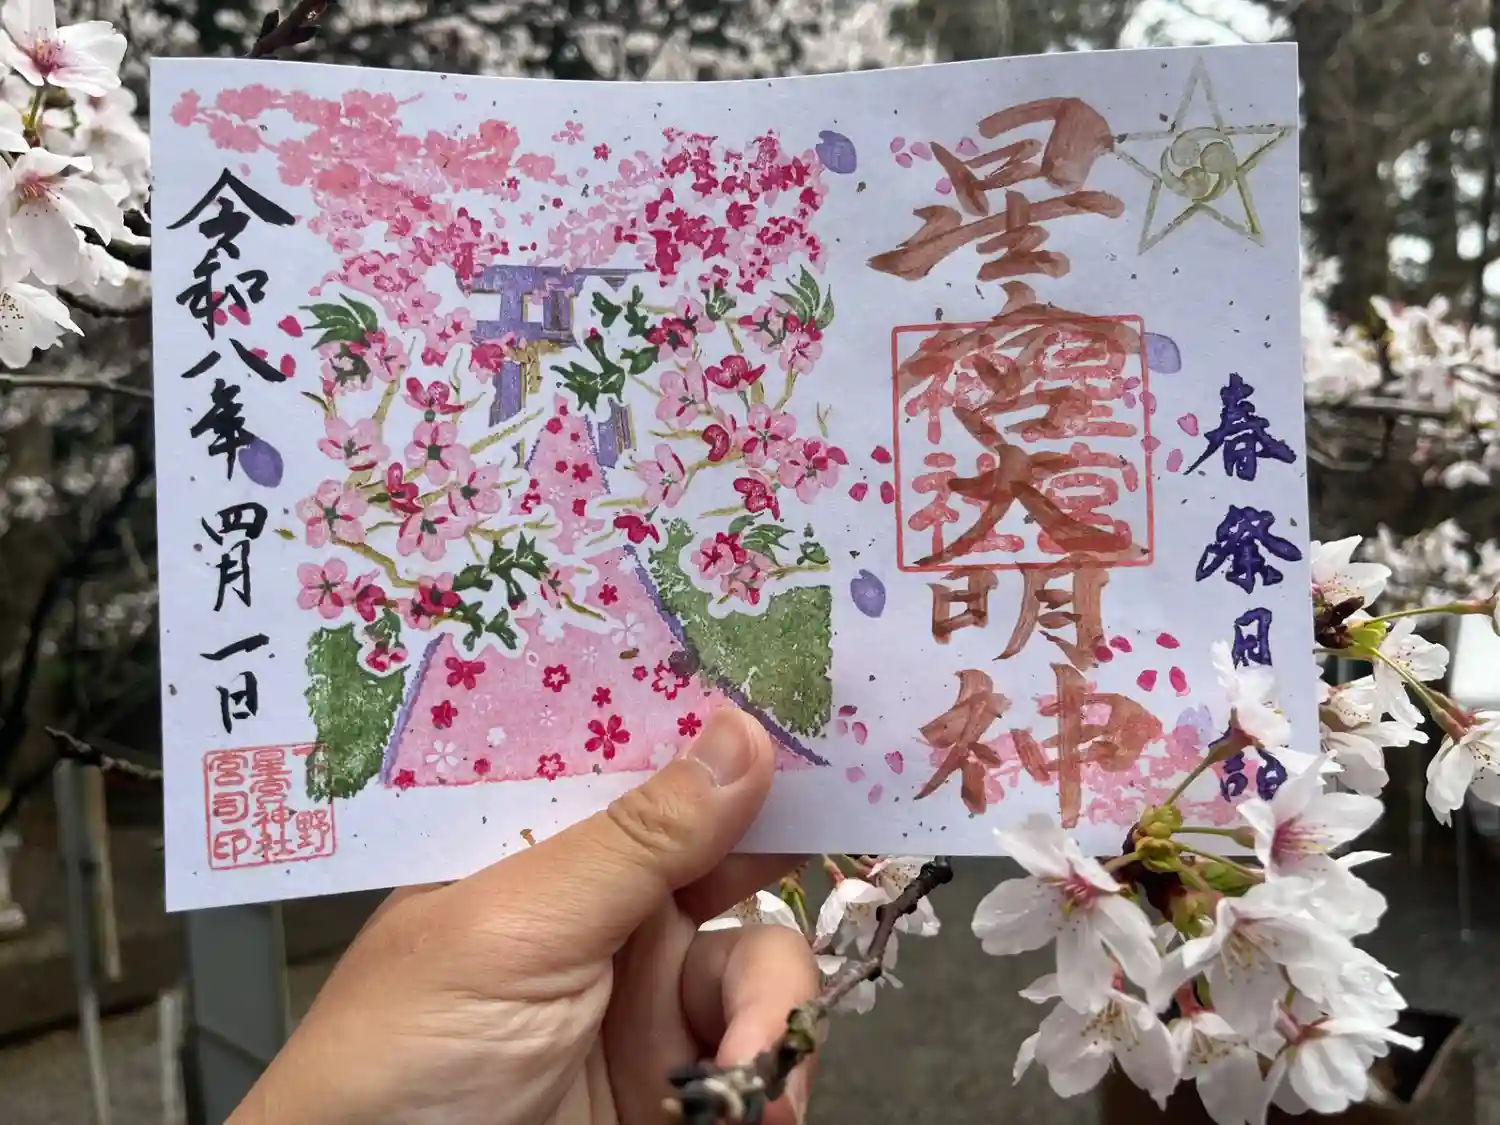 春祭日詣
星宮大明神
星宮神社
令和八年四月一日
下野
星宮神社
宮司印